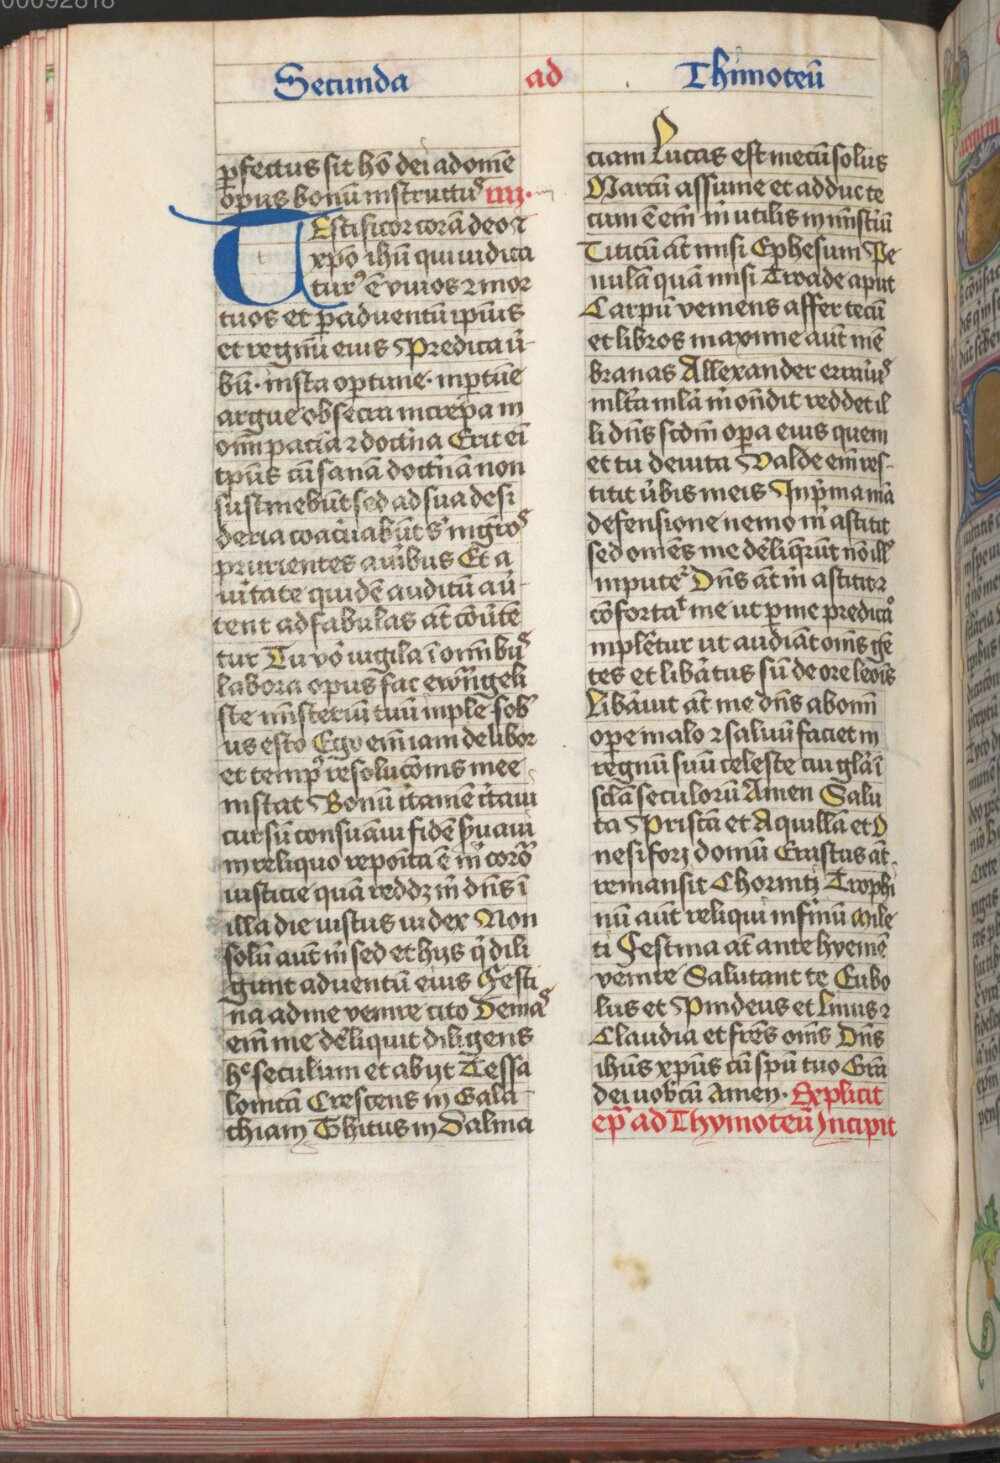 00092818
Secunda ad Thimoteū
ꝑfectus sit hō dei ad omē
opus bonū instructꝰ iiij.
Testificor corā deo ⁊
xp̄o ihū qui iudica
turꝰ ē viuos ⁊ mor
tuos et ꝑ aduentū ip̄ius
et regnū eius Predica v̓
bū· insta oportune· inportūe
argue obsecra increpa in
om̄i pacīa ⁊ doctīna Erit em̄
tp̄us cū sanā doctīnā non
sustinebūt sed ad sua desi
deria coac̓uabūt s̓ mgr̄os
prurientes auribus Et a
v̓itate quidē auditū au̓
tent ad fabulas at̄ cōu̓te
tur Tu vo̓ vigila ī om̄ibꝰ
labora opus fac ewāngeli
ste mīsteriū tuū imple sobͥ
us esto Ego em̄ iam delibor
et tempꝰ resolucōnis mee
instat Bonū c̓tamē c̓taui
cursū consūaui fidē s̓uaui
in reliquo reposita ē m̄ corō
iusticie quā reddꝫ m̄ dn̄s ī
illa die iustus iudex Non
solū aut̄ m̄ sed et hijs q̄ dili
gunt aduentū eius Festi
na ad me venire cito Demaꝰ
em̄ me dēliquit diligens
hͦ seculum et abijt Tessa
lonicā Crescens in Gala
thiam Thitus in Dalma
ciam Lucas est mecū solus
Marcū assume et adduc te
cum ē em̄ m̄ utilis in mīstīu
Titicū at̄ misi Ephesum Pe
nulā quā misi Troade aput
Carpū veniens affer tecū
et libros maxime aut̄ mē
branas Allexander erariꝰ
ml̄ta mla m̄ on̄dit reddet il
li dn̄s scdm̄ oꝑa eius quem
et tu deuita Valde em̄ res
titit v̓bis meis In p̄ma mā
defensione nemo m̄ astitit
sed omēs me dēliq̄rūt nō illꝰ
imputeͬ Dn̄s at̄ m̄ astitit ⁊
cōfortaͭ me ut ꝑ me predicaͦ
implētur ut audiāt om̄s gē
tes et lib̓atus sū de ore leoīs
Lib̓auit at̄ me dn̄s ab om̄i
oꝑe malo ⁊ saluū faciet in
regnū suū celeste cui glā ī
scl̄a seculorū Amen Salu
ta Priscā et Aquillā et O
nesiforꝫ domū Erastus at̄
remansit Chorintꝫ Trophi
nū aut̄ reliqui infīmū Mile
ti Festina at̄ ante hyemē
venire Salutant te Eubo
lus et Pindeus et Linus ⁊
Claudia et fr̄es om̄s Dn̄s
ihūs xp̄us cū sp̄u tuo Grā
dei uobcū Amen· Explicit
ep̄a ad Thymoteū Incipit